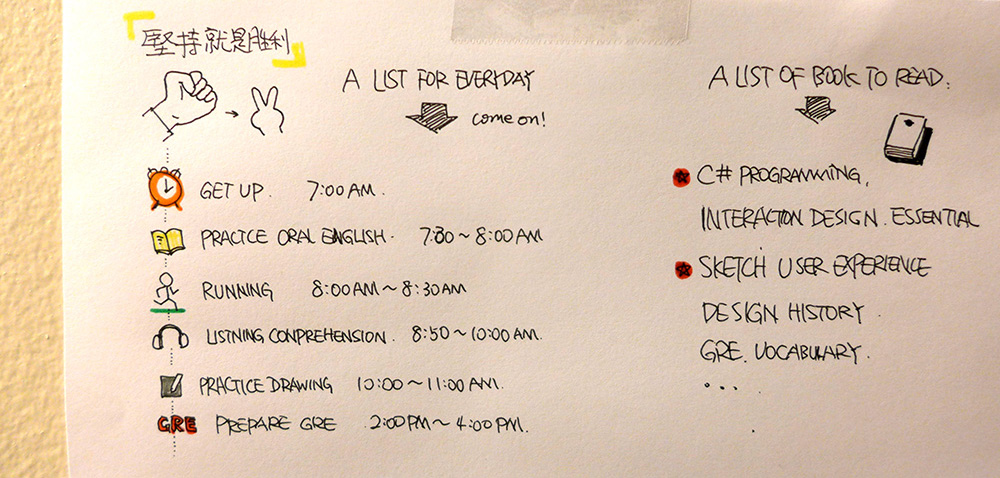 堅持就是胜利
A LIST FOR EVERYDAY
come on!
GET UP. 7:00 AM.
PRACTCE ORAL ENGLISH. 7:30~8:00AM
RUNNING 8:00AM~8:30AM
LISTNING CONPREHENSION. 8:50~10:00AM.
PRACTICE DRAWING 10:00~11:00AM.
GRE PREPARE GRE 2:00PM~4:00PM.
A LIST OF BOOK TO READ:
C# PROGRAMMING,
INTERACTON DESIGN. ESSENTIAL
SKETCH USER EXPERIENCE
DESIGN HISTORY.
GRE. VOCABULARY.
...